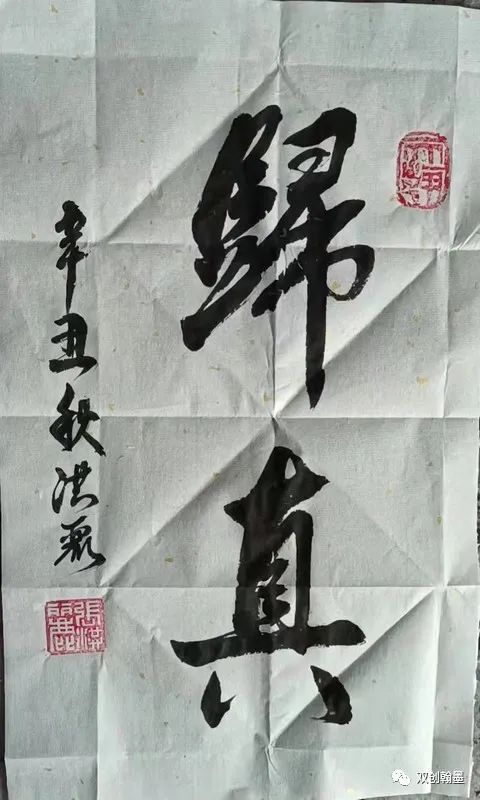 歸真
辛丑秋洪
双创翰墨